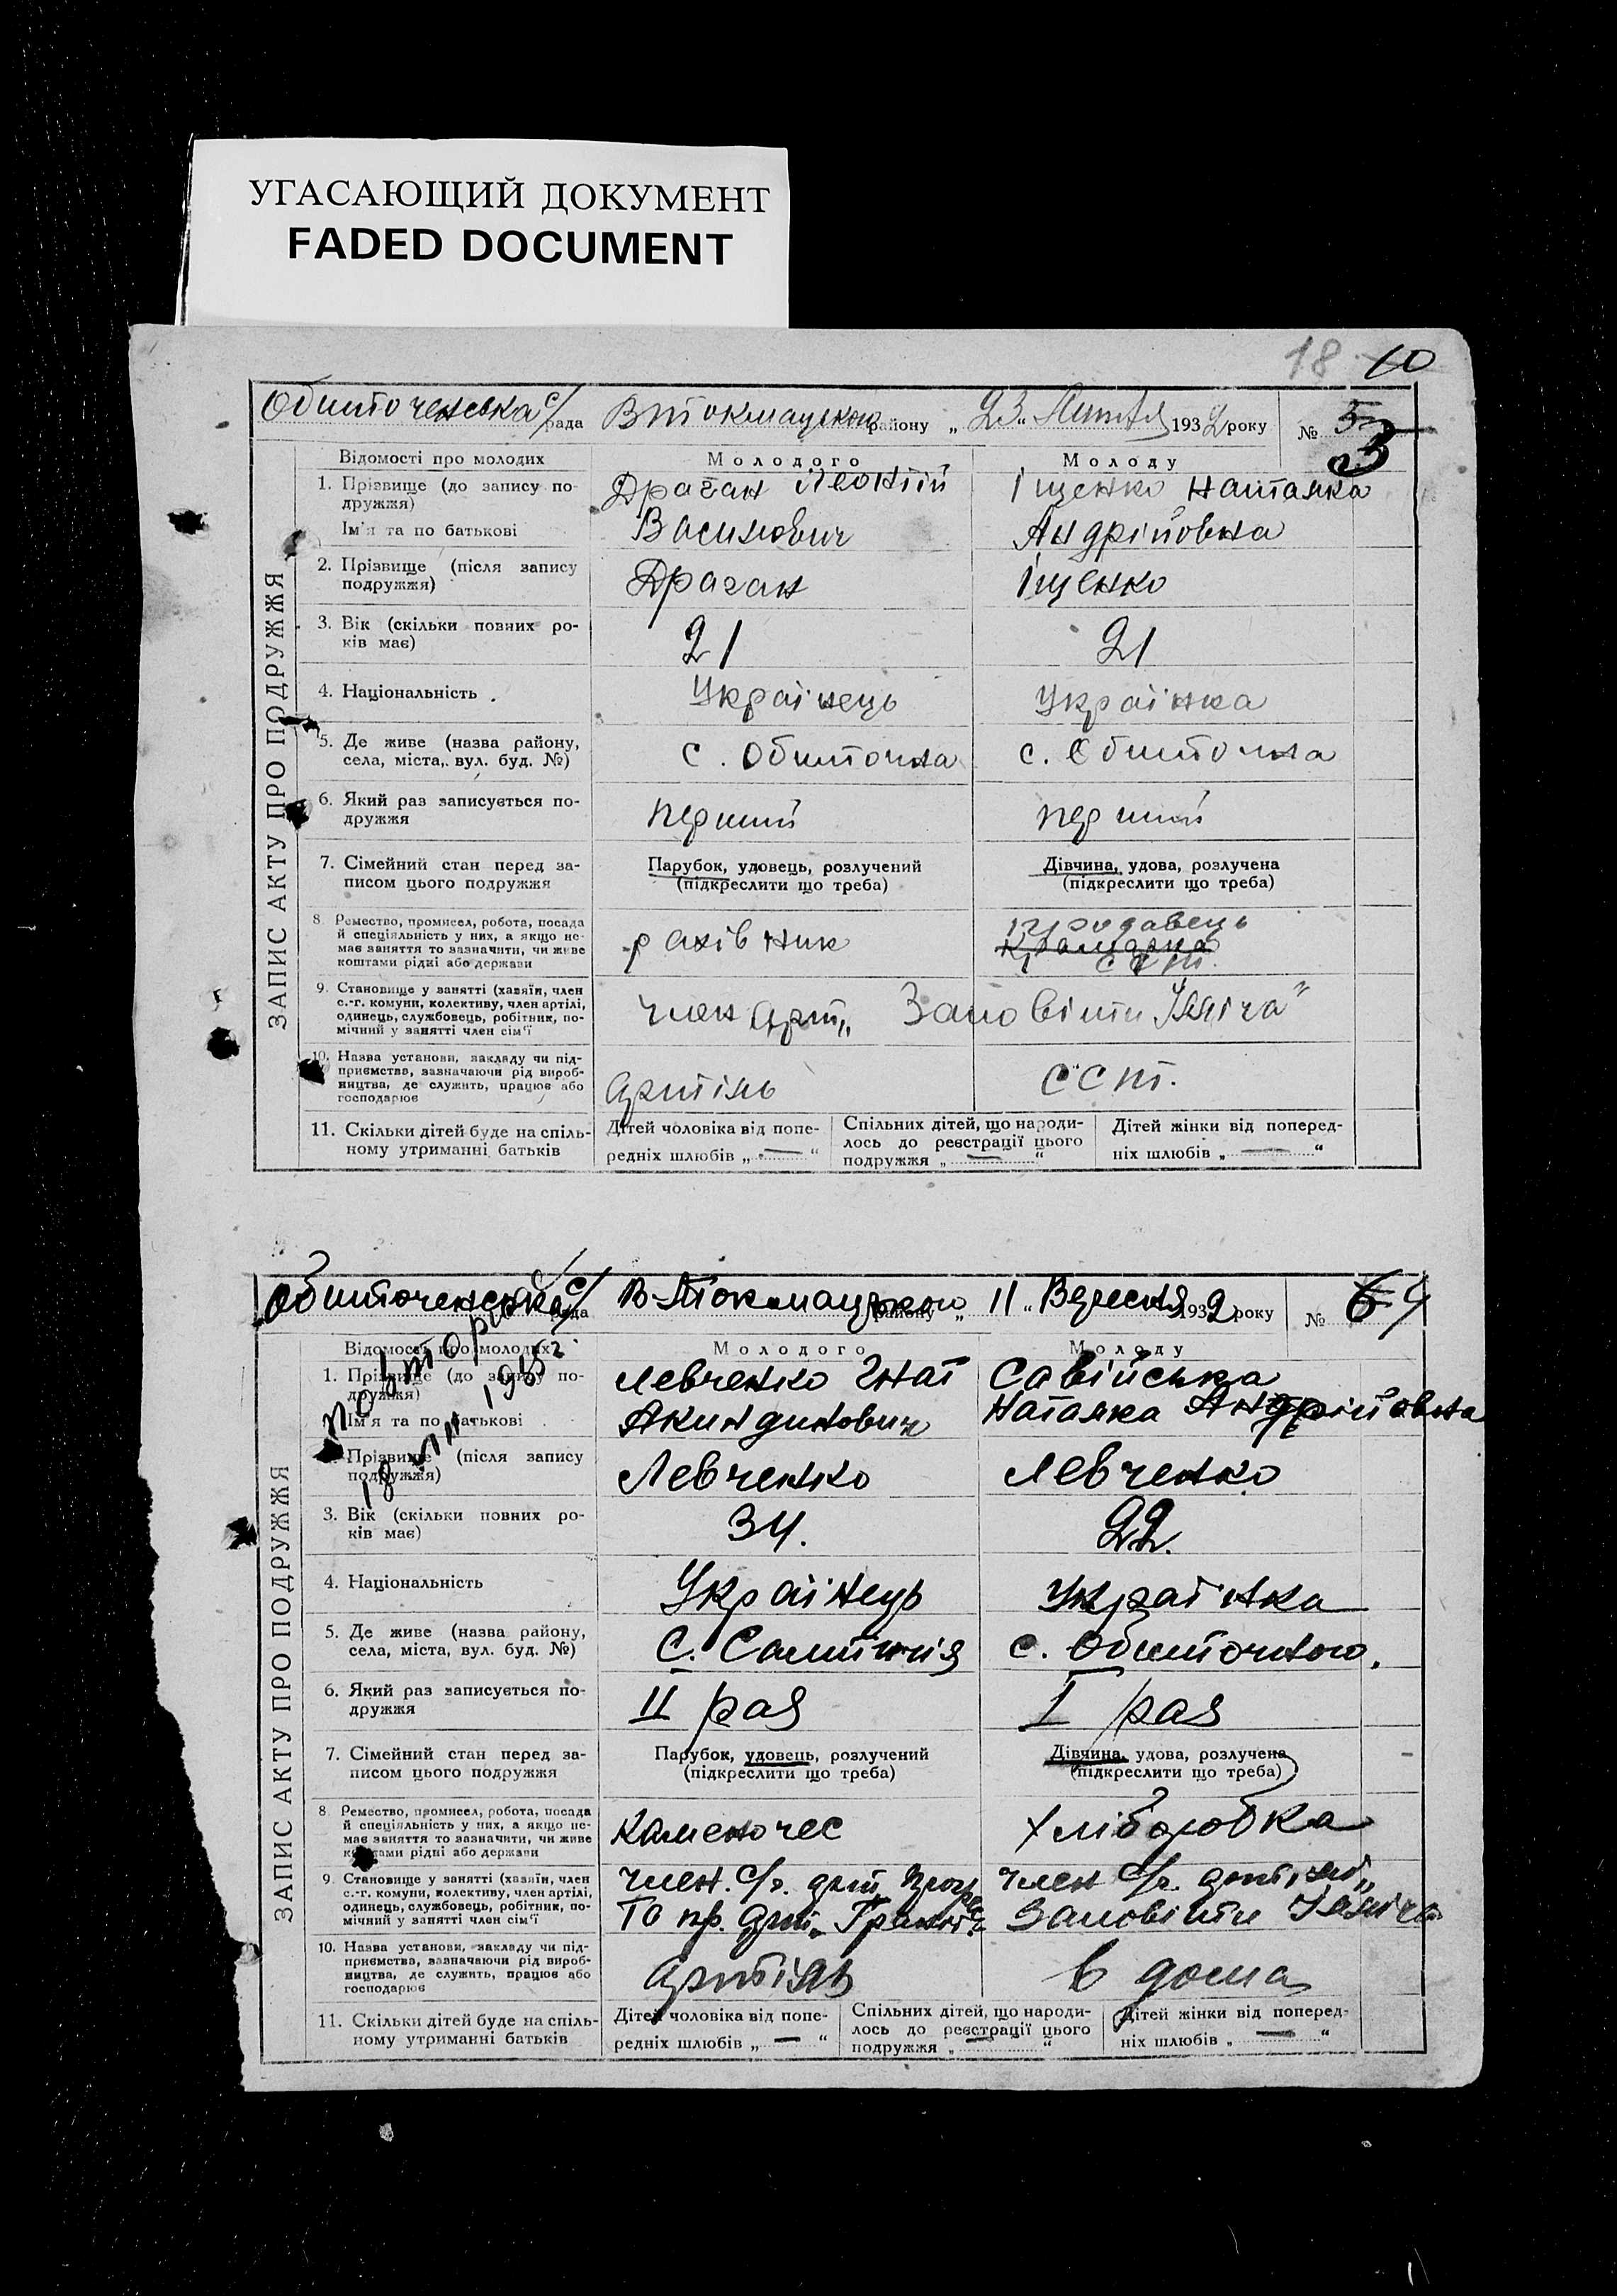 УГАСАЮЩИЙ ДОКУМЕНТ
FADED DOCUMENT
18 10
Обиточенська с/рада В Токмацького району „23" 1932 року № 5 3
ЗАПИС АКТУ ПРО ПОДРУЖЖЯ
Відомості про молодих Молодого Молоду
1. Прізвище (до запису по- Драган Леонтій Іщенко Наталка
дружжя)
Ім'я та по батькові Васильович Андріївна
2. Прізвище (після запису Драган Іщенко
подружжя)
3. Вік (скільки повних ро- 21 21
ків має)
4. Національність Українець Українка
5. Де живе (назва району, с. Обиточна с. Обиточна
села, міста, вул. буд. №)
6. Який раз записується по- перший перший
дружжя
7. Сімейний стан перед за- Парубок, удовець, розлучений Дівчина, удова, розлучена
писом цього подружжя (підкреслити що треба) (підкреслити що треба)
8. Ремество, промисел, робота, посада продавець
й спеціяльність у них, а якщо не- рахівник
має заняття то зазначити, чи живе ССТ.
коштами рідні або держави
9. Становище у занятті (хазяїн, член член арт. „Заповіти Ілліча"
с.-г. комуни, колективу, член артілі,
одинець, службовець, робітник, по-
мічний у занятті член сім'ї
10. Назва установи, закладу чи під- артіль ССТ.
приємства, зазначаючи рід вироб-
ництва, де служить, працює або
господарює
11. Скільки дітей буде на спіль- Дітей чоловіка від попе- Спільних дітей, що народи- Дітей жінки від поперед-
ному утриманні батьків редніх шлюбів „ — " лось до реєстрації цього ніх шлюбів „ — "
подружжя „ — "
Обиточенська с/рада В-Токмацького району „11" Вересня 1932 року № 6 4
ЗАПИС АКТУ ПРО ПОДРУЖЖЯ
повторне
Відомості про молодих Молодого Молоду
1. Прізвище (до запису по- Левченко Гнат Савійська
дружжя)
Ім'я та по батькові Акиндинович Наталка Андріївна
2. Прізвище (після запису Левченко Левченко
подружжя)
3. Вік (скільки повних ро- 34. 22.
ків має)
4. Національність Українець Українка
5. Де живе (назва району, С. Салтичія с. Обиточного.
села, міста, вул. буд. №)
6. Який раз записується по- II раз I раз
дружжя
7. Сімейний стан перед за- Парубок, удовець, розлучений Дівчина, удова, розлучена
писом цього подружжя (підкреслити що треба) (підкреслити що треба)
8. Ремество, промисел, робота, посада Каменочес Хліборобка
й спеціяльність у них, а якщо не-
має заняття то зазначити, чи живе
коштами рідні або держави
9. Становище у занятті (хазяїн, член член. с/г. арт. член с/г. артілі „
с.-г. комуни, колективу, член артілі, пр. арт. „Граніт" Заповіти Ілліча
одинець, службовець, робітник, по-
мічний у занятті член сім'ї
10. Назва установи, закладу чи під- артіль в дома
приємства, зазначаючи рід вироб-
ництва, де служить, працює або
господарює
11. Скільки дітей буде на спіль- Дітей чоловіка від попе- Спільних дітей, що народи- Дітей жінки від поперед-
ному утриманні батьків редніх шлюбів „ — " лось до реєстрації цього ніх шлюбів „ — "
подружжя „ — "